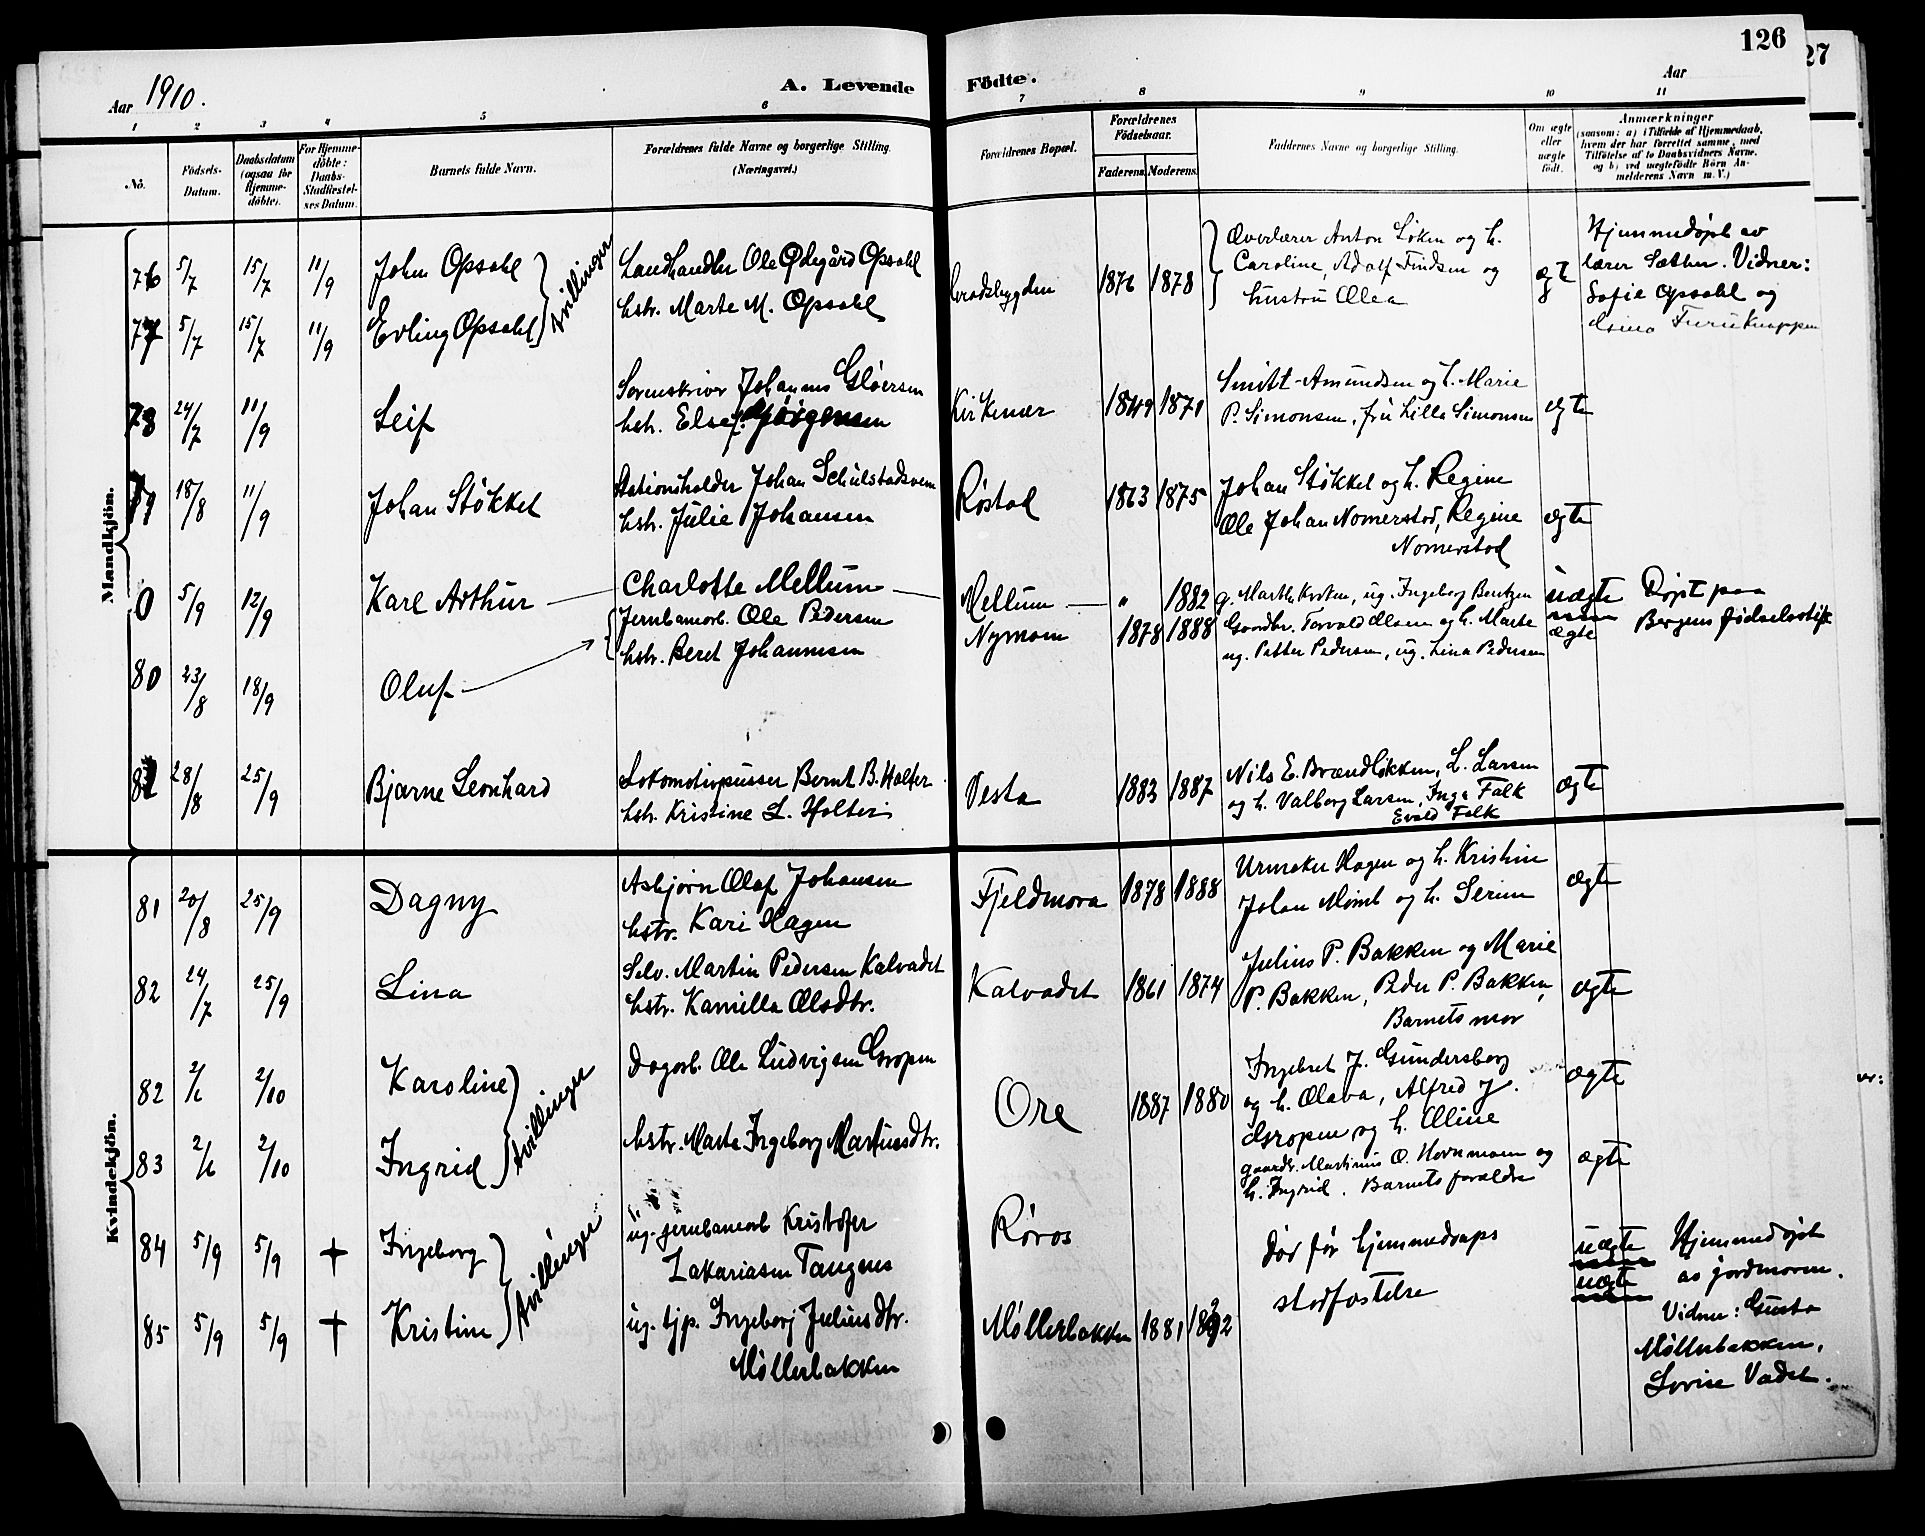 126
27
Aar 1910.
A. Levende Födte.
Aar
1 2 3 4 5 6 7 8 9 10 11
No.
Födsels-Datum.
Daabsdatum (ogsaa for Hjemme-döbte).
For Hjemme-döbte: Daabs-Stadfæstel-ses Datum.
Barnets fulde Navn.
Forældrenes fulde Navne og borgerlige Stilling.
(Næringsvei.)
Forældrenes Bopæl.
Forældrenes Födselsaar.
Faderens. Moderens.
Faddernes Navne og borgerlige Stilling.
Om ægte eller uægte födt.
Anmærkninger
(saasom: a) i Tilfælde af Hjemmedaab, hvem der har forrettet samme, med Tilföielse af to Daabsvidners Navne, og b) ved uægtefödte Börn An-melderens Navn m. V.)
Mandkjön.
76 5/7 15/7 11/9 John Opsahl Landhandler Ole Ødegård Opsahl 1876 1878 Anton Löken og h. ægt Hjemmedøpt av
hstr. Marte M. Opsahl Caroline, Adolf Findsen og lærer Sæther. Vidner:
hustru Olea Sofie Opsahl og
77 5/7 15/7 11/9 Erling Opsahl tvillinger Furuknappen
78 24/7 11/9 Leif Sorenskriver Johannes Gløersen Kirkenær 1849 1871 Smitt-Amundsen og h. Marie ægte
hstr. Else P. Simonsen, fru Lilla Simonsen
79 18/8 11/9 Johan Støkket Stationsholder Johan Schulstadsveen Røstad 1863 1875 Johan Støkket og h. Regine ægte
hstr. Julie Johansen Ole Johan Nomerstad, Regine
Nomerstad
0 5/9 12/9 Karl Arthur Charlotte Mellum Mellum " 1882 g. Marthe Ingeborg Bentzen uægte Døpt paa
Jernbanearb. Ole Pedersen Nymoen 1878 1888 Gaardbr. Torvald Olsen og h. Marte ægte Bergens fødselsstift
hstr. Beret Johannesen ug. Petter Pedersen, ug. Lina Pedersen
80 23/8 18/9 Oluf
81 28/8 25/9 Bjarne Leonhard Lokomotivpusser Bernt B. Holter Vesta 1883 1887 Nils E. Brændløkken, L. Larsen ægte
hstr. Kristine L. Holter og h. Valborg Larsen, Inga Falk
Evald Falk
Kvindekjön.
81 20/8 25/9 Dagny Asbjørn Olaf Johansen Fjeldmora 1878 1888 Urmaker Hagen og h. Kristine ægte
hstr. Kari Hagen Johan og h. Serine
82 24/7 25/9 Lina Selv. Martin Pedersen Kalvadet Kalvadet 1861 1874 Julius P. Bakken og Marie ægte
hstr. Kamilla Olsdtr. P. Bakken, Peder P. Bakken,
Barnets mor
82 2/6 2/10 Karoline Dagarb. Ole Ludvigsen Gropen Ore 1887 1880 Ingebret J. Gundersborg ægte
og h. Olava, Alfred J.
Gropen og h. Oline
83 2/6 2/10 Ingrid tvillinger hstr. Marte Ingeborg Martinusdtr. gaardr. Martinus O. Hornmoen og ægte
h. Ingrid. Barnets forældre
84 5/9 5/9 + Ingeborg ug. jernbanearb Kristofer Røros død før hjemmedaaps uægte Hjemmedøpt
Zakariasen Tangnes stadfæstelse uægte av jordmoren.
85 5/9 5/9 + Kristine tvillinger ug. tjp. Ingeborg Juliusdtr. Møllerbakken 1881 Vidner: Gusta
Møllerbakken Møllerbakken,
Lovise Vadet.